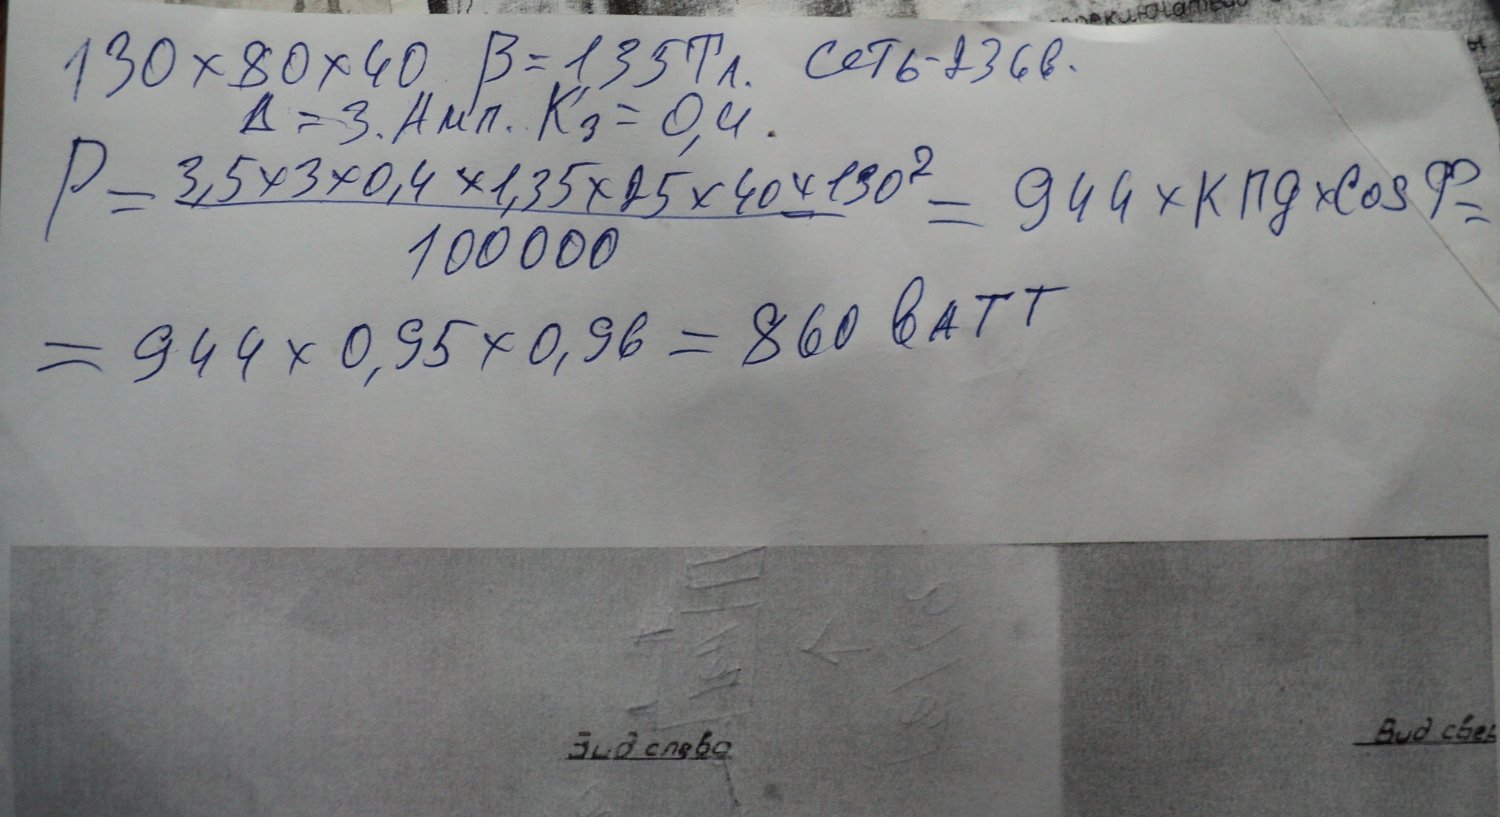 130×80×40 B=1,35Тл. Сеть-236в.
Δ=3.Амп. Кз=0,4.
P=3,5×3×0,4×1,35×25×40×130²=944×КПд×Cosφ=
100000
=944×0,95×0,96=860 ватт
Вид слева
Вид свер